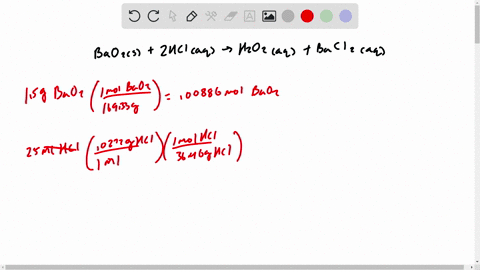 BaO2(s) + 2HCl(aq) → H2O2(aq) + BaCl2(aq)
1.5g BaO2 (1 mol BaO2 / 169.33g) = .00886 mol BaO2
25 ml HCl (.0272g HCl / 1 ml) (1 mol HCl / 36.46g HCl)